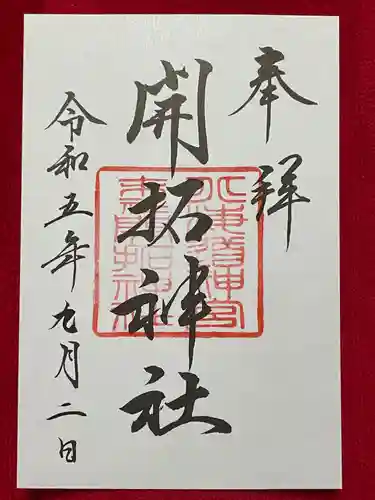 奉拝
開拓神社
令和五年九月二日
北海道神宮
末社開拓神社